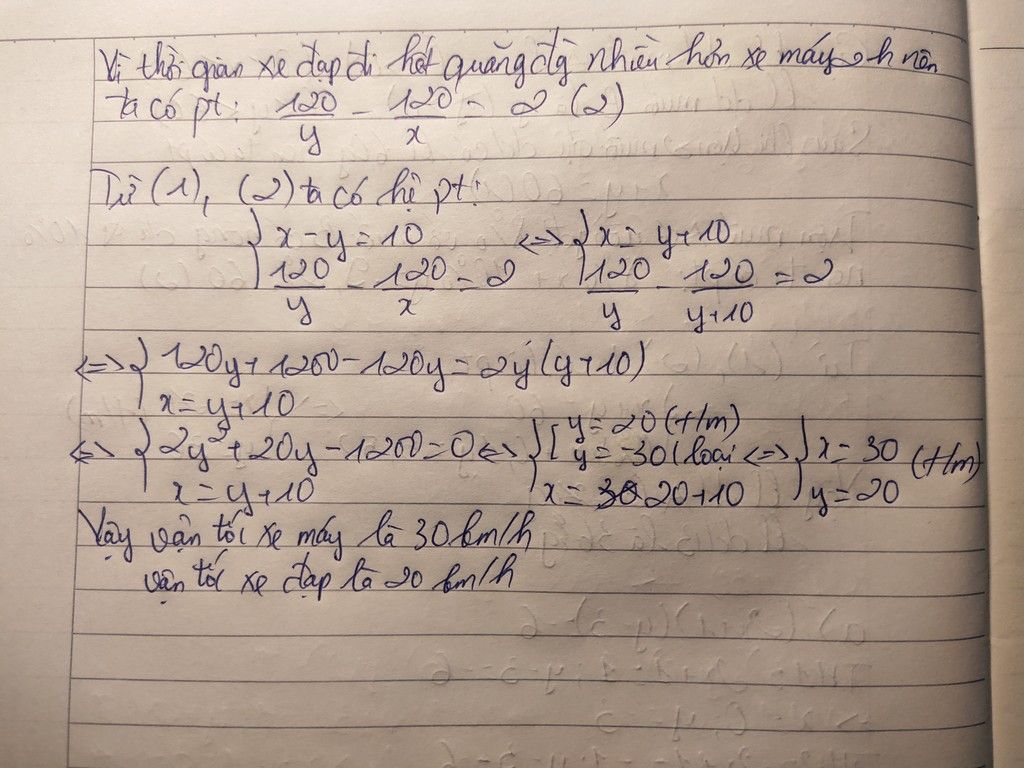 Vì thời gian xe đạp đi hết quãng đg nhiều hơn xe máy 2h nên
ta có pt: 120/y - 120/x = 2 (2)
Từ (1), (2) ta có hệ pt:
{ x - y = 10 <=> { x = y + 10
120/y - 120/x = 2 120/y - 120/(y+10) = 2
<=> { 120y + 1200 - 120y = 2y (y + 10)
x = y + 10
<=> { 2y² + 20y - 1200 = 0 <=> { [ y = 20 (t/m) y = -30 (loại <=> { x = 30 (t/m)
x = y + 10 x = 20 + 10 y = 20
Vậy vận tốc xe máy là 30 km/h
vận tốc xe đạp là 20 km/h